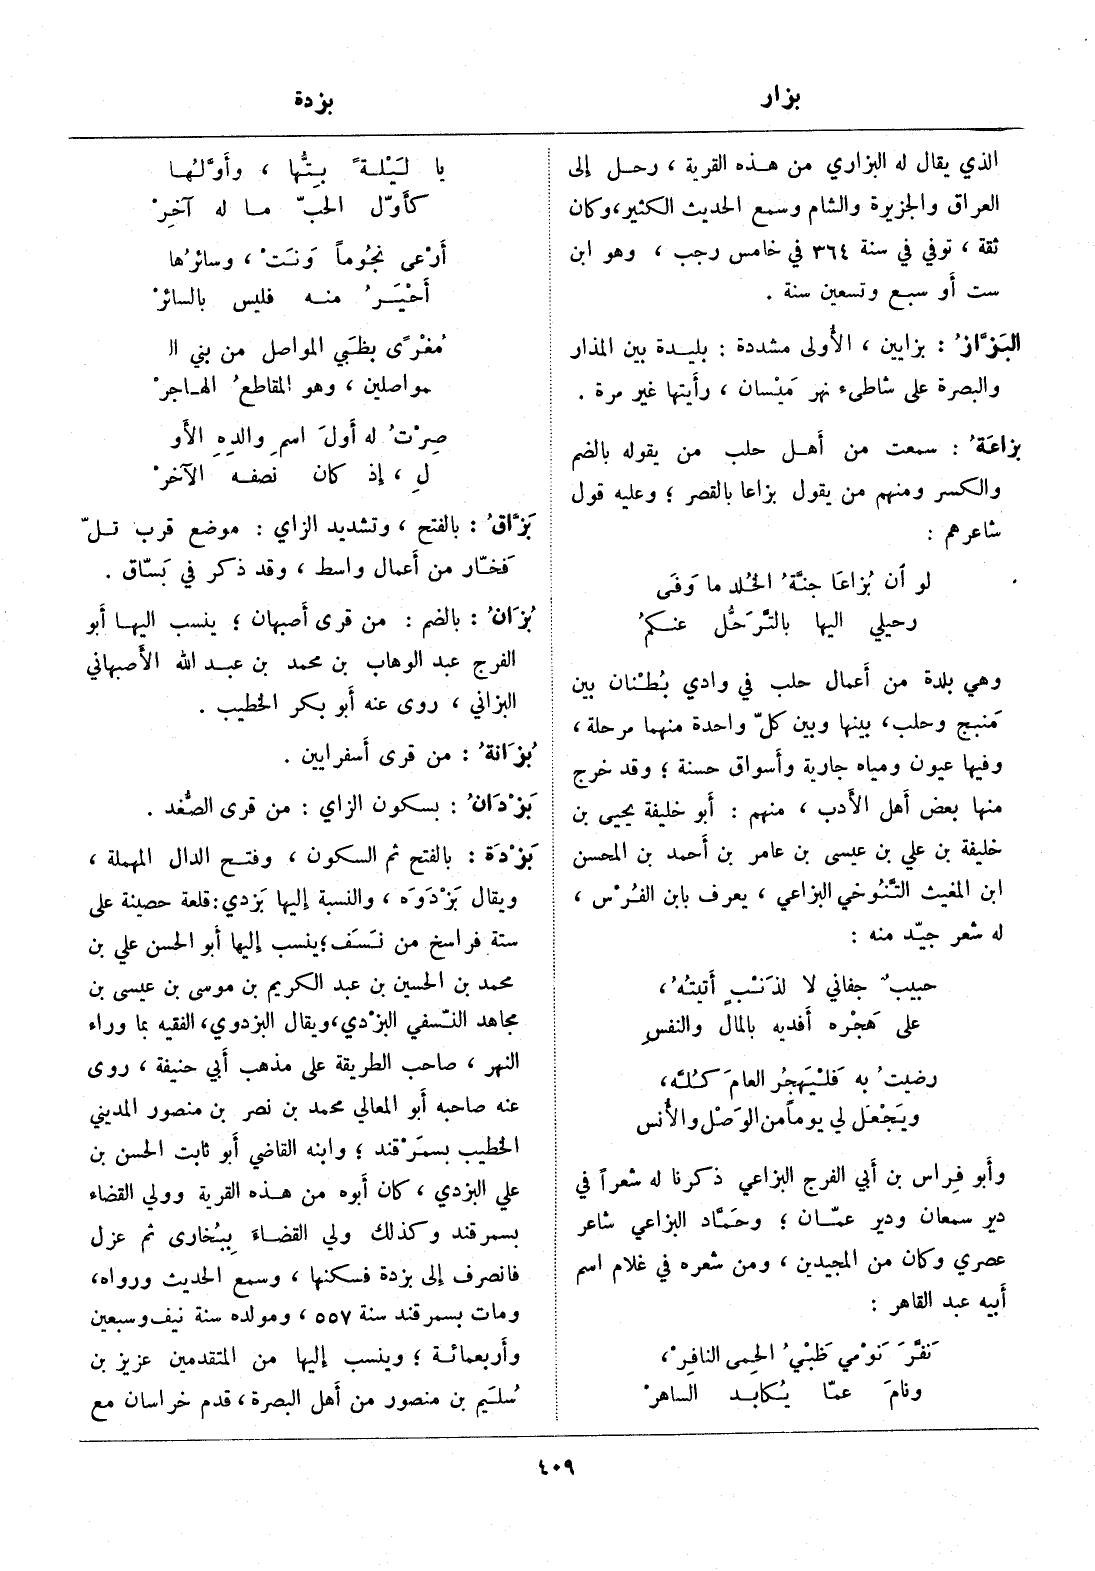 بزار
بزدة
الذي يقال له البزاري من هذه القرية ، رحل إلى
العراق والجزيرة والشام وسمع الحديث الكثير، وكان
ثقة ، توفي في سنة ٣٦٤ في خامس رجب ، وهو ابن
ست أو سبع وتسعين سنة .
البَزَّازُ : بزايين ، الأولى مشددة : بليدة بين المذار
والبصرة على شاطىء نهر مَيْسان ، رأيتها غير مرة .
بزاعَةُ : سمعت من أهل حلب من يقوله بالضم
والكسر ومنهم من يقول بزاعا بالقصر ؛ وعليه قول
شاعرهم :
لو أن بُزاعَا جنَّةُ الخُلد ما وَفَى
رحيلي اليها بالتَّرَحُّل عنكمُ
وهي بلدة من أعمال حلب في وادي بُطْنان بين
مَنبج وحلب، بينها وبين كلّ واحدة منهما مرحلة ،
وفيها عيون ومياه جارية وأسواق حسنة ؛ وقد خرج
منها بعض أهل الأدب ، منهم : أبو خليفة يحيى بن
خليفة بن علي بن عيسى بن عامر بن أحمد بن المحسن
ابن المغيث التَّنُوخي البزاعي ، يعرف بابن الفُرْس ،
له شعر جيّد منه :
حبيبٌ جفاني لا لذَنْبٍ أتيتُهُ ،
على هَجْره أفديه بالمال والنفسِ
رضيتُ به فَلْيَهجُر العامَ كُلَّه،
ويَجْعَل لي يوماً من الوَصْل والأُنس
وأبو فِراس بن أبي الفرج البزاعي ذكرنا له شعراً في
دير سمعان ودير عمّان ؛ وحَمَّاد البزاعي شاعر
عصري وكان من المجيدين ، ومن شعره في غلام اسم
أبيه عبد القاهر :
نَفَّرَ نَوْمي ظَبْيُ الحِمى النافِرْ ،
ونامَ عمّا يُكابد الساهرْ
يا لَيْلةً بِتُّها ، وأوَّلُها
كأوّل الحبّ ما له آخِرْ
أرْعى نجُوماً وَنَتْ ، وسائرُها
أحْيَرُ منه فليس بالسائرْ
مُغْرًى بظَبي المواصل من بني ال
مواصلين ، وهو المقاطعُ الهاجرْ
صِرْتُ له أولَ اسمِ والدِهِ الأو
لِ ، إذ كان نصفه الآخرْ
بَزَّاقُ : بالفتح ، وتشديد الزاي : موضع قرب تلّ
فَخّار من أعمال واسط ، وقد ذكر في بَسّاق .
بُزَانُ : بالضم : من قرى أصبهان ؛ ينسب اليها أبو
الفرج عبد الوهاب بن محمد بن عبد الله الأصبهاني
البزاني ، روى عنه أبو بكر الخطيب .
بُزَانةُ : من قرى أسفرايين .
بَزْدَانُ : بسكون الزاي : من قرى الصُّغد .
بَزْدَة : بالفتح ثم السكون ، وفتح الدال المهملة ،
ويقال بَزْدَوَه ، والنسبة إليها بَزدي: قلعة حصينة على
ستة فراسخ من نَسَف؛ ينسب إليها أبو الحسن علي بن
محمد بن الحسين بن عبد الكريم بن موسى بن عيسى بن
مجاهد النّسفي البزْدي، ويقال البزدوي، الفقيه بما وراء
النهر ، صاحب الطريقة على مذهب أبي حنيفة ، روى
عنه صاحبه أبو المعالي محمد بن نصر بن منصور المديني
الخطيب بسمَرْقند ؛ وابنه القاضي أبو ثابت الحسن بن
علي البزدي ، كان أبوه من هذه القرية وولي القضاء
بسمرقند وكذلك ولي القضاءَ بِبُخارى ثم عزل
فانصرف إلى بزدة فسكنها ، وسمع الحديث ورواه،
ومات بسمرقند سنة ٥٥٧ ، ومولده سنة نيف وسبعين
وأربعمائة ؛ وينسب إليها من المتقدمين عزيز بن
سُلَيم بن منصور من أهل البصرة ، قدم خراسان مع
٤٠٩